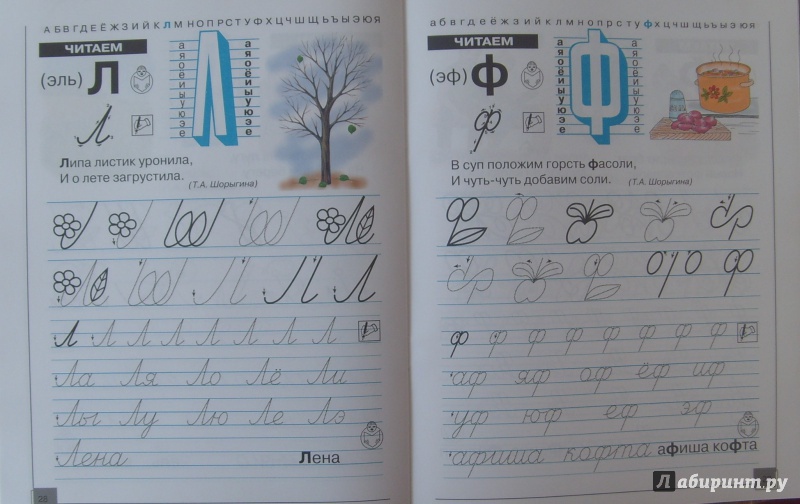 А Б В Г Д Е Ё Ж З И Й К Л М Н О П Р С Т У Ф Х Ц Ч Ш Щ Ь Ъ Ы Э Ю Я
ЧИТАЕМ
(эль) Л
Л
Л
а а
я я
о о
ё ё
и и
ы ы
у у
ю ю
э э
е е
Липа листик уронила,
И о лете загрустила. (Т.А. Шорыгина)
Л Л
Л Л Л Л Л Л Л Л
Ла Ля Ло Лё Ли
Лы Лу Лю Ле Лэ
Лена Лена
28
а б в г д е ё ж з и й к л м н о п р с т у ф х ц ч ш щ ь ъ ы э ю я
ЧИТАЕМ
(эф) Ф
ф
Ф
а а
я я
о о
ё ё
и и
ы ы
у у
ю ю
э э
е е
В суп положим горсть фасоли,
И чуть-чуть добавим соли. (Т.А. Шорыгина)
ф
ф ф ф ф ф ф ф ф
аф яф оф ёф иф
уф юф еф эф
афиша кофта афиша кофта
Лабиринт.ру